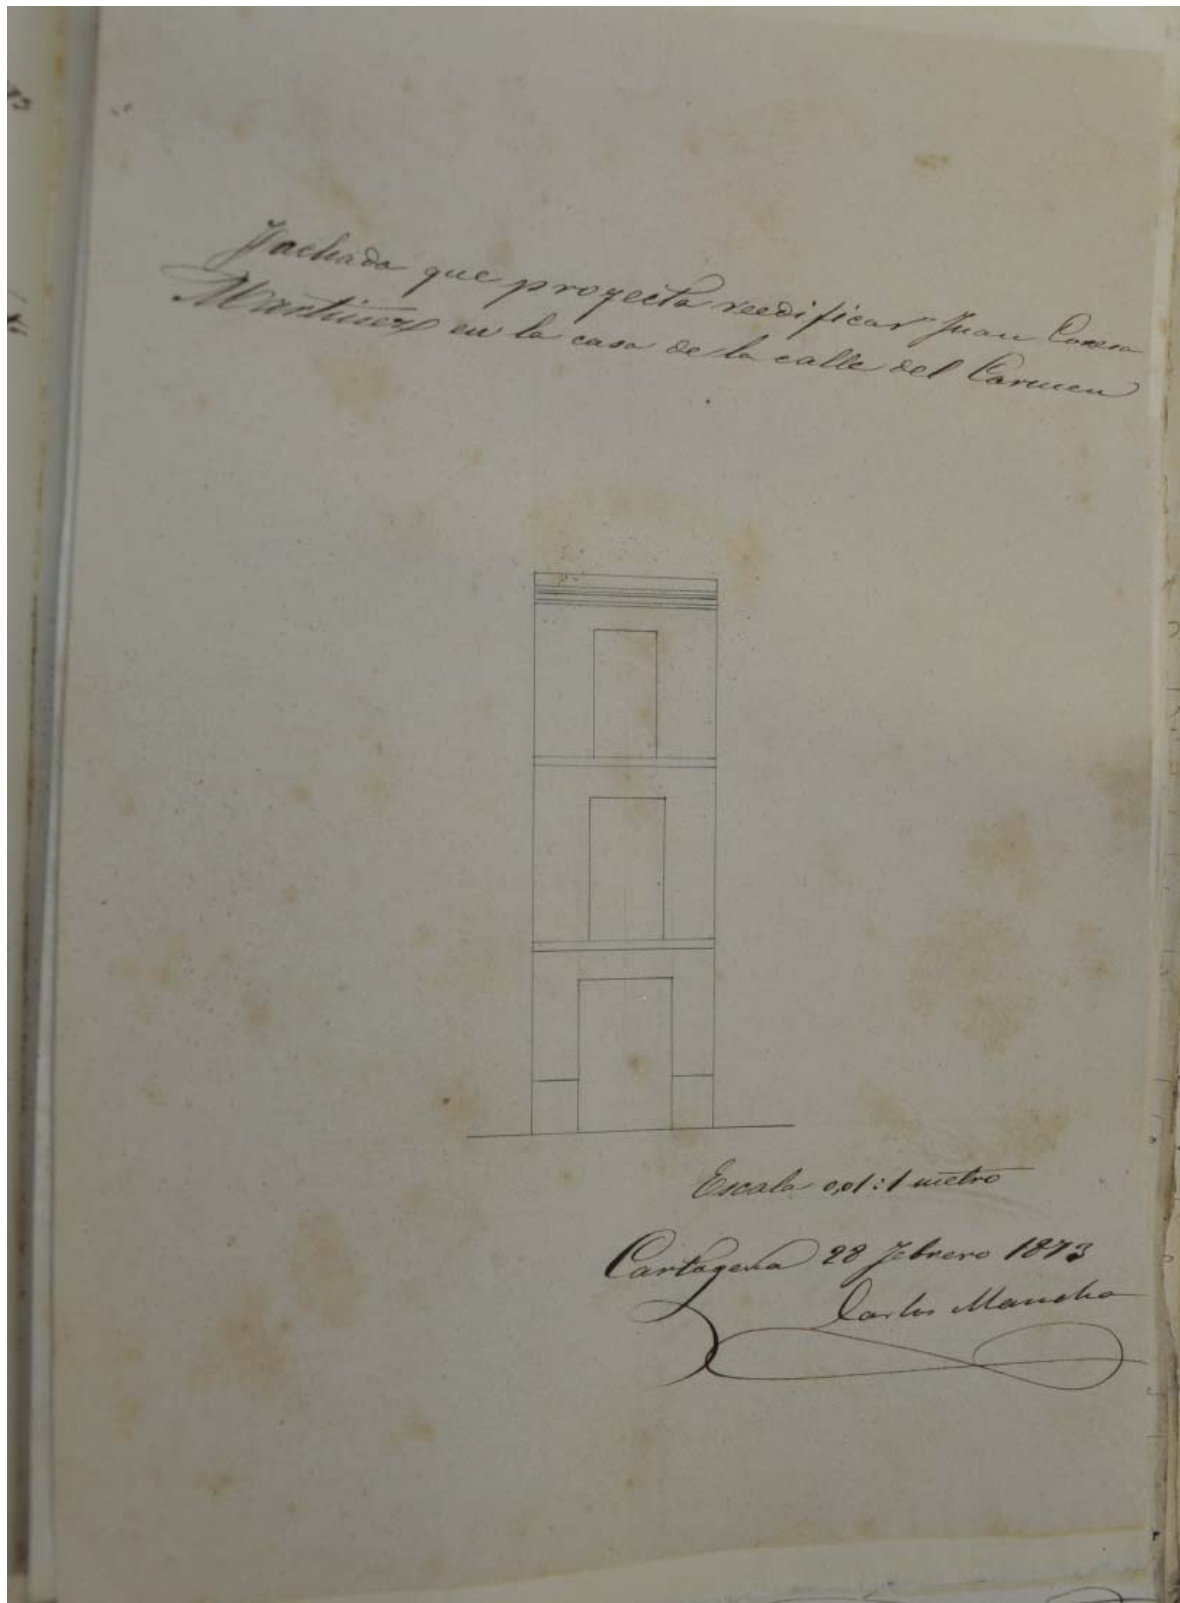 Fachada que proyecta reedificar Juan
Martinez en la casa de la calle del Carmen
Escala 0,01:1 metro
Cartagena 28 Febrero 1873
Carlos Mancha